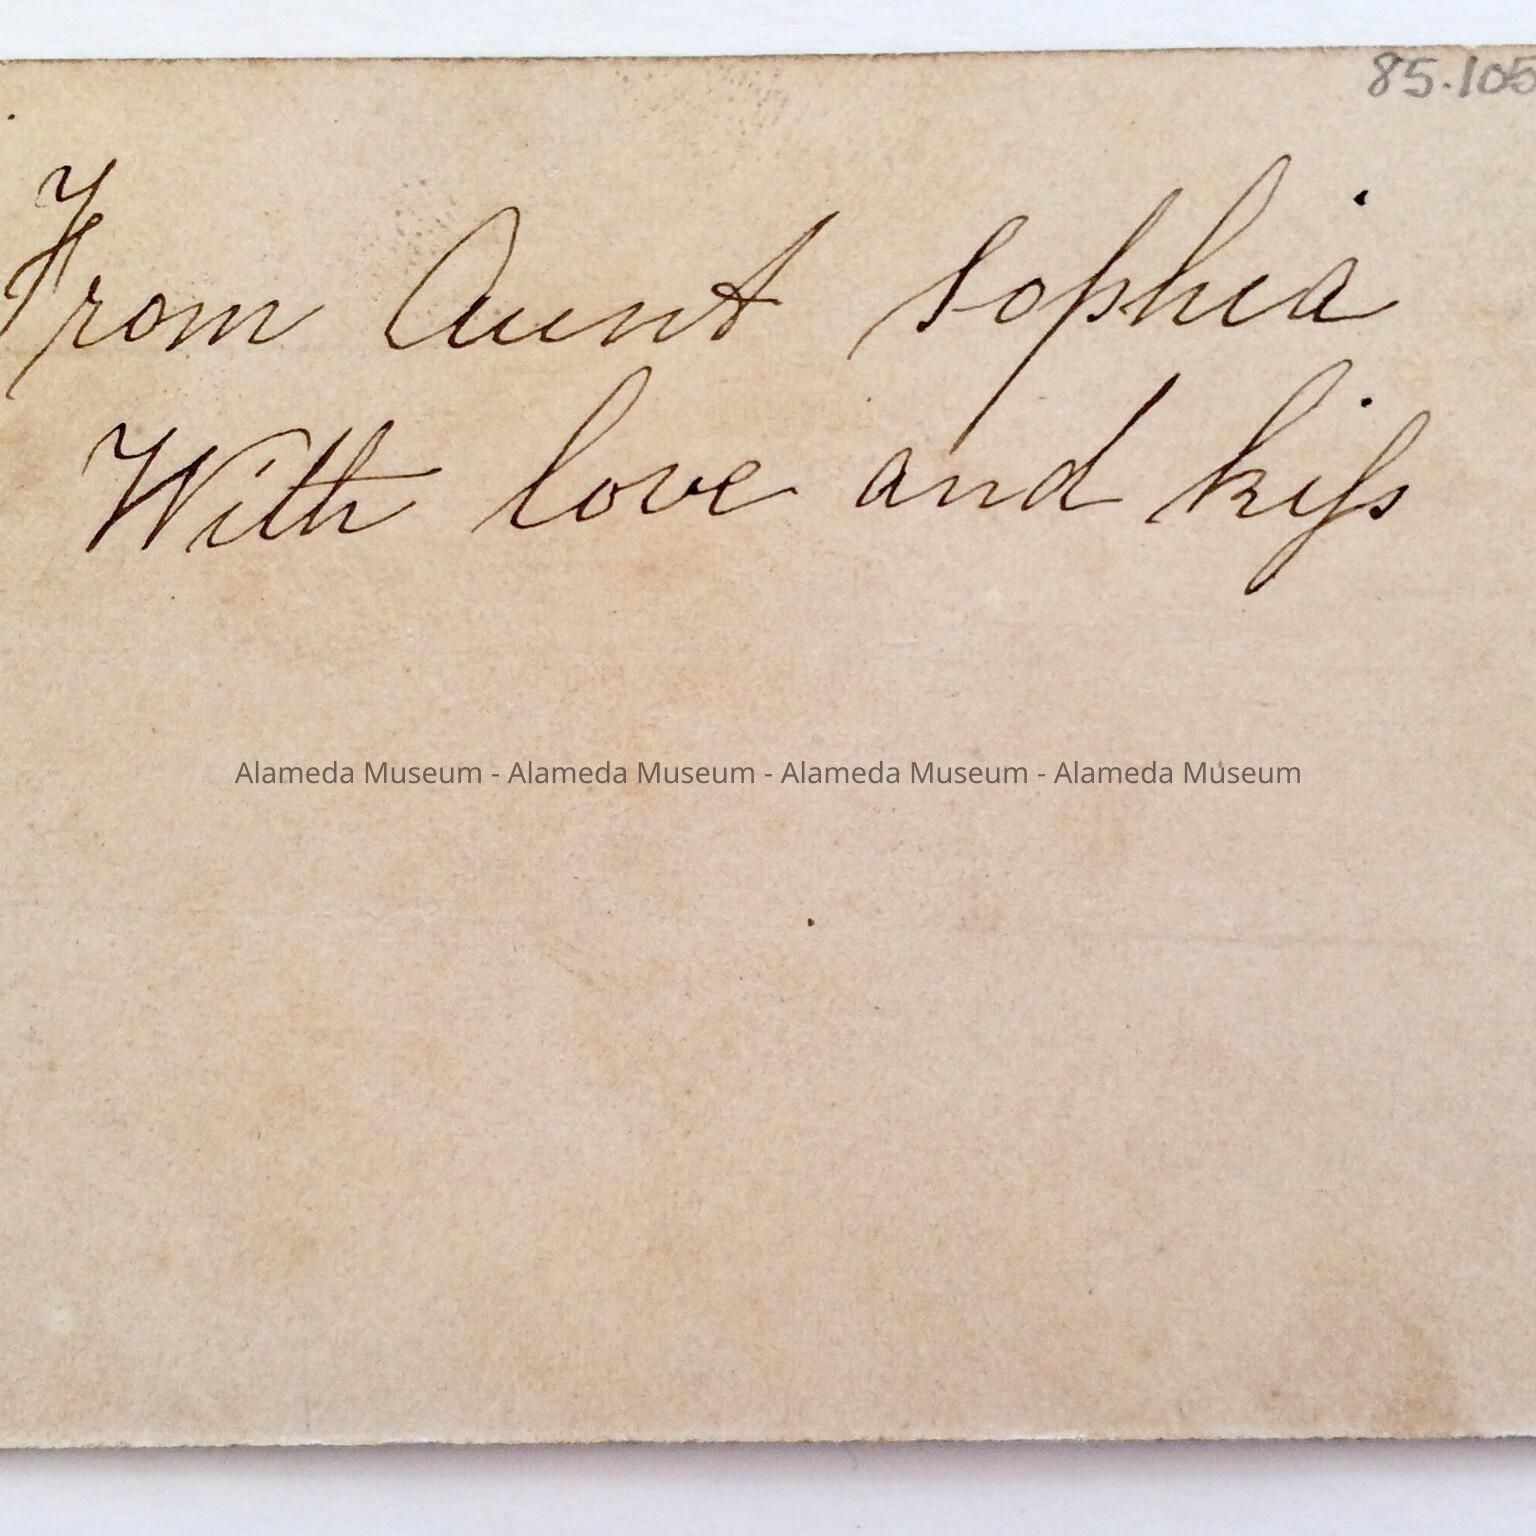 85.105
From Aunt Sophia
With love and kiſs
Alameda Museum - Alameda Museum - Alameda Museum - Alameda Museum